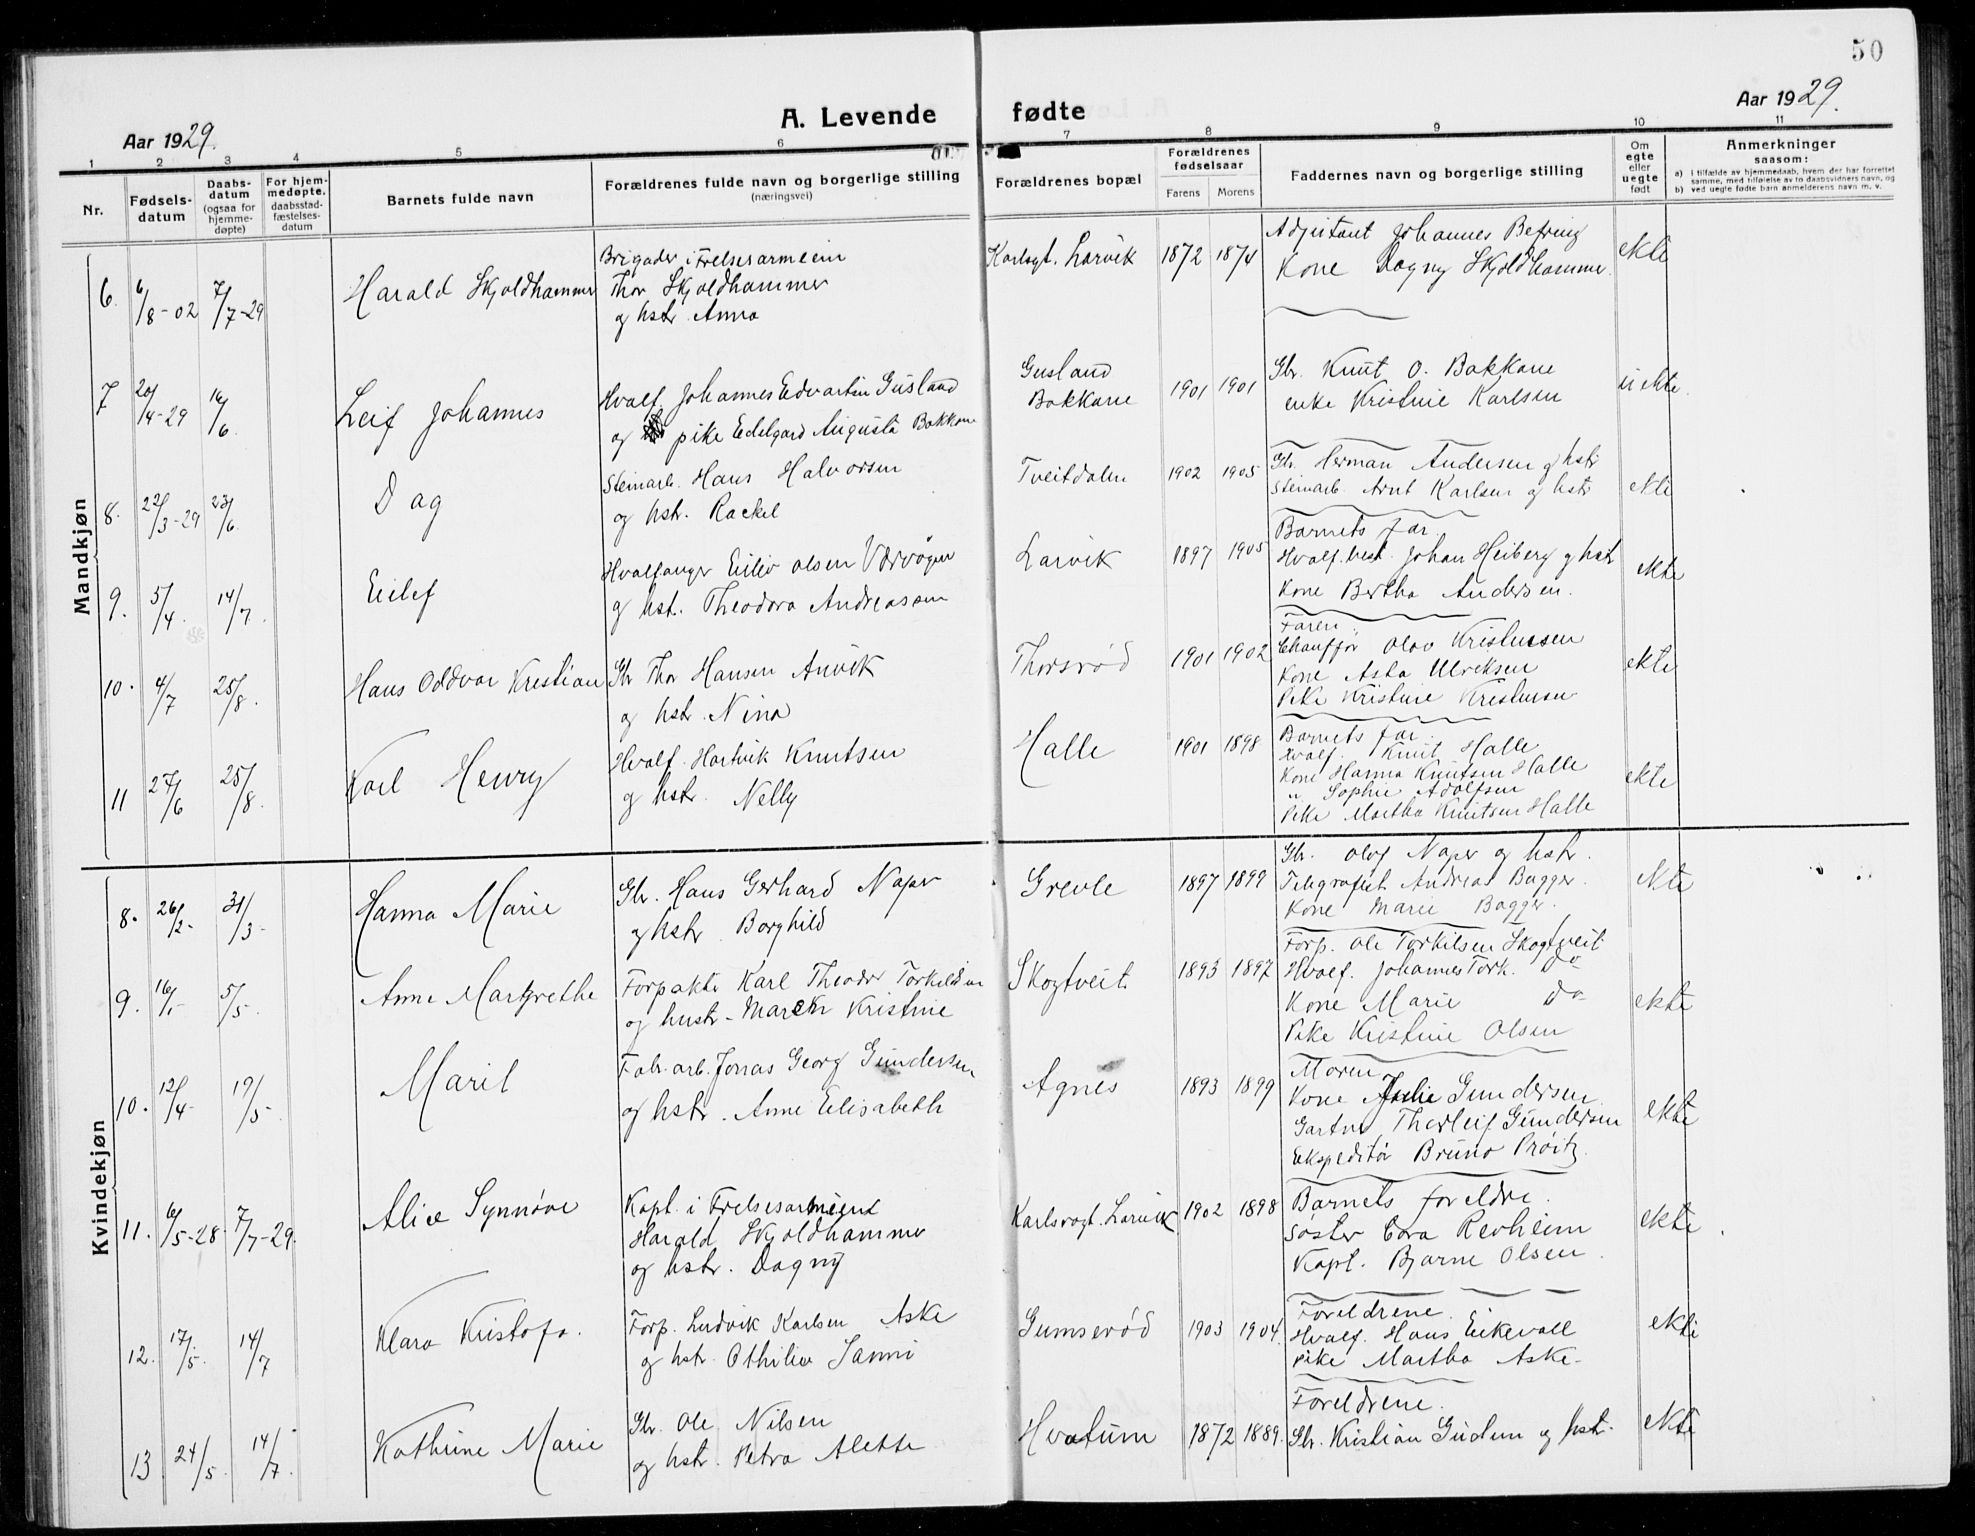 50
A. Levende fødte
Aar 1929.
Aar 1929.
1 2 3 4 5 6 7 8 9 10 11
Nr.
Fødsels-datum
Daabs-datum (ogsaa for hjemme-døpte)
For hjem-medøpte. daabsstad-fæstelses-datum
Barnets fulde navn
Forældrenes fulde navn og borgerlige stilling
(næringsvei)
Forældrenes bopæl
Forældrenes fødselsaar
Farens Morens
Faddernes navn og borgerlige stilling
Om egte eller uegte født
Anmerkninger
saasom:
a) i tilfælde av hjemmedaab, hvem der har forrettet
samme, med tilføielse av to daabsvidners navn, og
b) ved uegte fødte barn anmelderens navn m. v.
Mandkjøn
6. 6/8-02 7/7-29 Harald Skjoldhammer
Brigader i Frelsesarmeein
Thor Skjoldhammer
og hstr. Anna
Karlsgt. Larvik 1872 1874
Adjutant Johannes Befring
Kone Dagny Skjoldhammer.
ekte
7 20/4-29 16/6. Leif Johannes
Hvalf. Johannes Edvartin Gusland
og pike Edelgard Augusta Bakkane
Gusland
Bakkane
1901 1901
Gbr. Knut O. Bakkane
enke Kristine Karlsen
uekte.
8. 22/3-29 23/6. Dag
Steinarb. Hans Halvorsen
og hstr. Rackel
Tveitdalen 1902 1905
Gbr. Herman Andersen og hstr
Steinarb. Arnt Karlsen og hstr
ekte
9. 5/4. 14/7. Eilef
Hvalfanger Eiliv Olsen
og hst. Theodora Andreassen
Larvik 1897 1905
Barnets far.
Hvalf.best. Johan Heiberg og hstr
Kone Bertha Andersen.
ekte
10. 4/7 25/8. Hans Oddvar Kristian
Gbr Thor Hansen Anvik
og hstr. Nina
Thorsrød 1901 1902
Faren.
Chauffør Olav Kristensen
Kone Asta Ulriksen
Pike Kristine Kristensen
ekte
11 27/6 25/8. Karl Henry
Hvalf. Hartvik Knutsen
og hstr. Nelly
Halle 1901 1898
Barnets far.
Hvalf. Knut Halle
Kone Hanna Knutsen Halle
" Sophie Adolfsen
Pike Martha Knutsen Halle
ekte
Kvindekjøn
8. 26/2. 31/3- Hanna Marie
Gbr. Hans Gerhard Naper
og hstr Borghild
Grevle 1897 1899
Gbr. Olof Naper og hstr.
Telegrafist Andreas Bagger.
Kone Marie Bagger.
ekte
9. 5/5. Anne Margrethe
Forpakte Karl Theodor Torkildsen
og hustr. Maren Kristine
Skogtveit 1893 1897
Forp. Ole Torkilsen Skogtveit
Hvalf. Johannes Tork. Do
Kone Marie Do
Pike Kristine Olsen
ekte
10. 12/4- 19/5- Marit
Fabr.arb. Jonas Georg Gundersen
og hstr. Anne Elisabeth
Agnes 1893 1899
Moren
Kone Julie Gundersen
Gartner Thorleif Gundersen
Ekspeditør Bruno Prøitz.
ekte
11. 6/5-28 7/7-29. Alice Synnøve
Kapt. i Frelsesarmeens
Harald Skjoldhammer
og hstr. Dagny
Karlsvogt. Larvik 1902 1898
Barnets foreldre.
Søster Cora Revheim
Kapt. Bjarne Olsen.
ekte
12. 17/5. 14/7 Klara Kristofa.
Forp. Ludvik Karlsen Aske
og hstr. Othilie Janni
Gumserød 1903 1904.
Foreldrene.
Hvalf. Hans Eikevall
Pike Martha Aske-
ekte
13 24/5. 14/7. Kathrine Marie
Gbr. Ole Nilsen
og hstr. Petra Alette
Hvatum 1872 1889.
Foreldrene.
Gbr. Kristian Gudem og hstr.
ekte